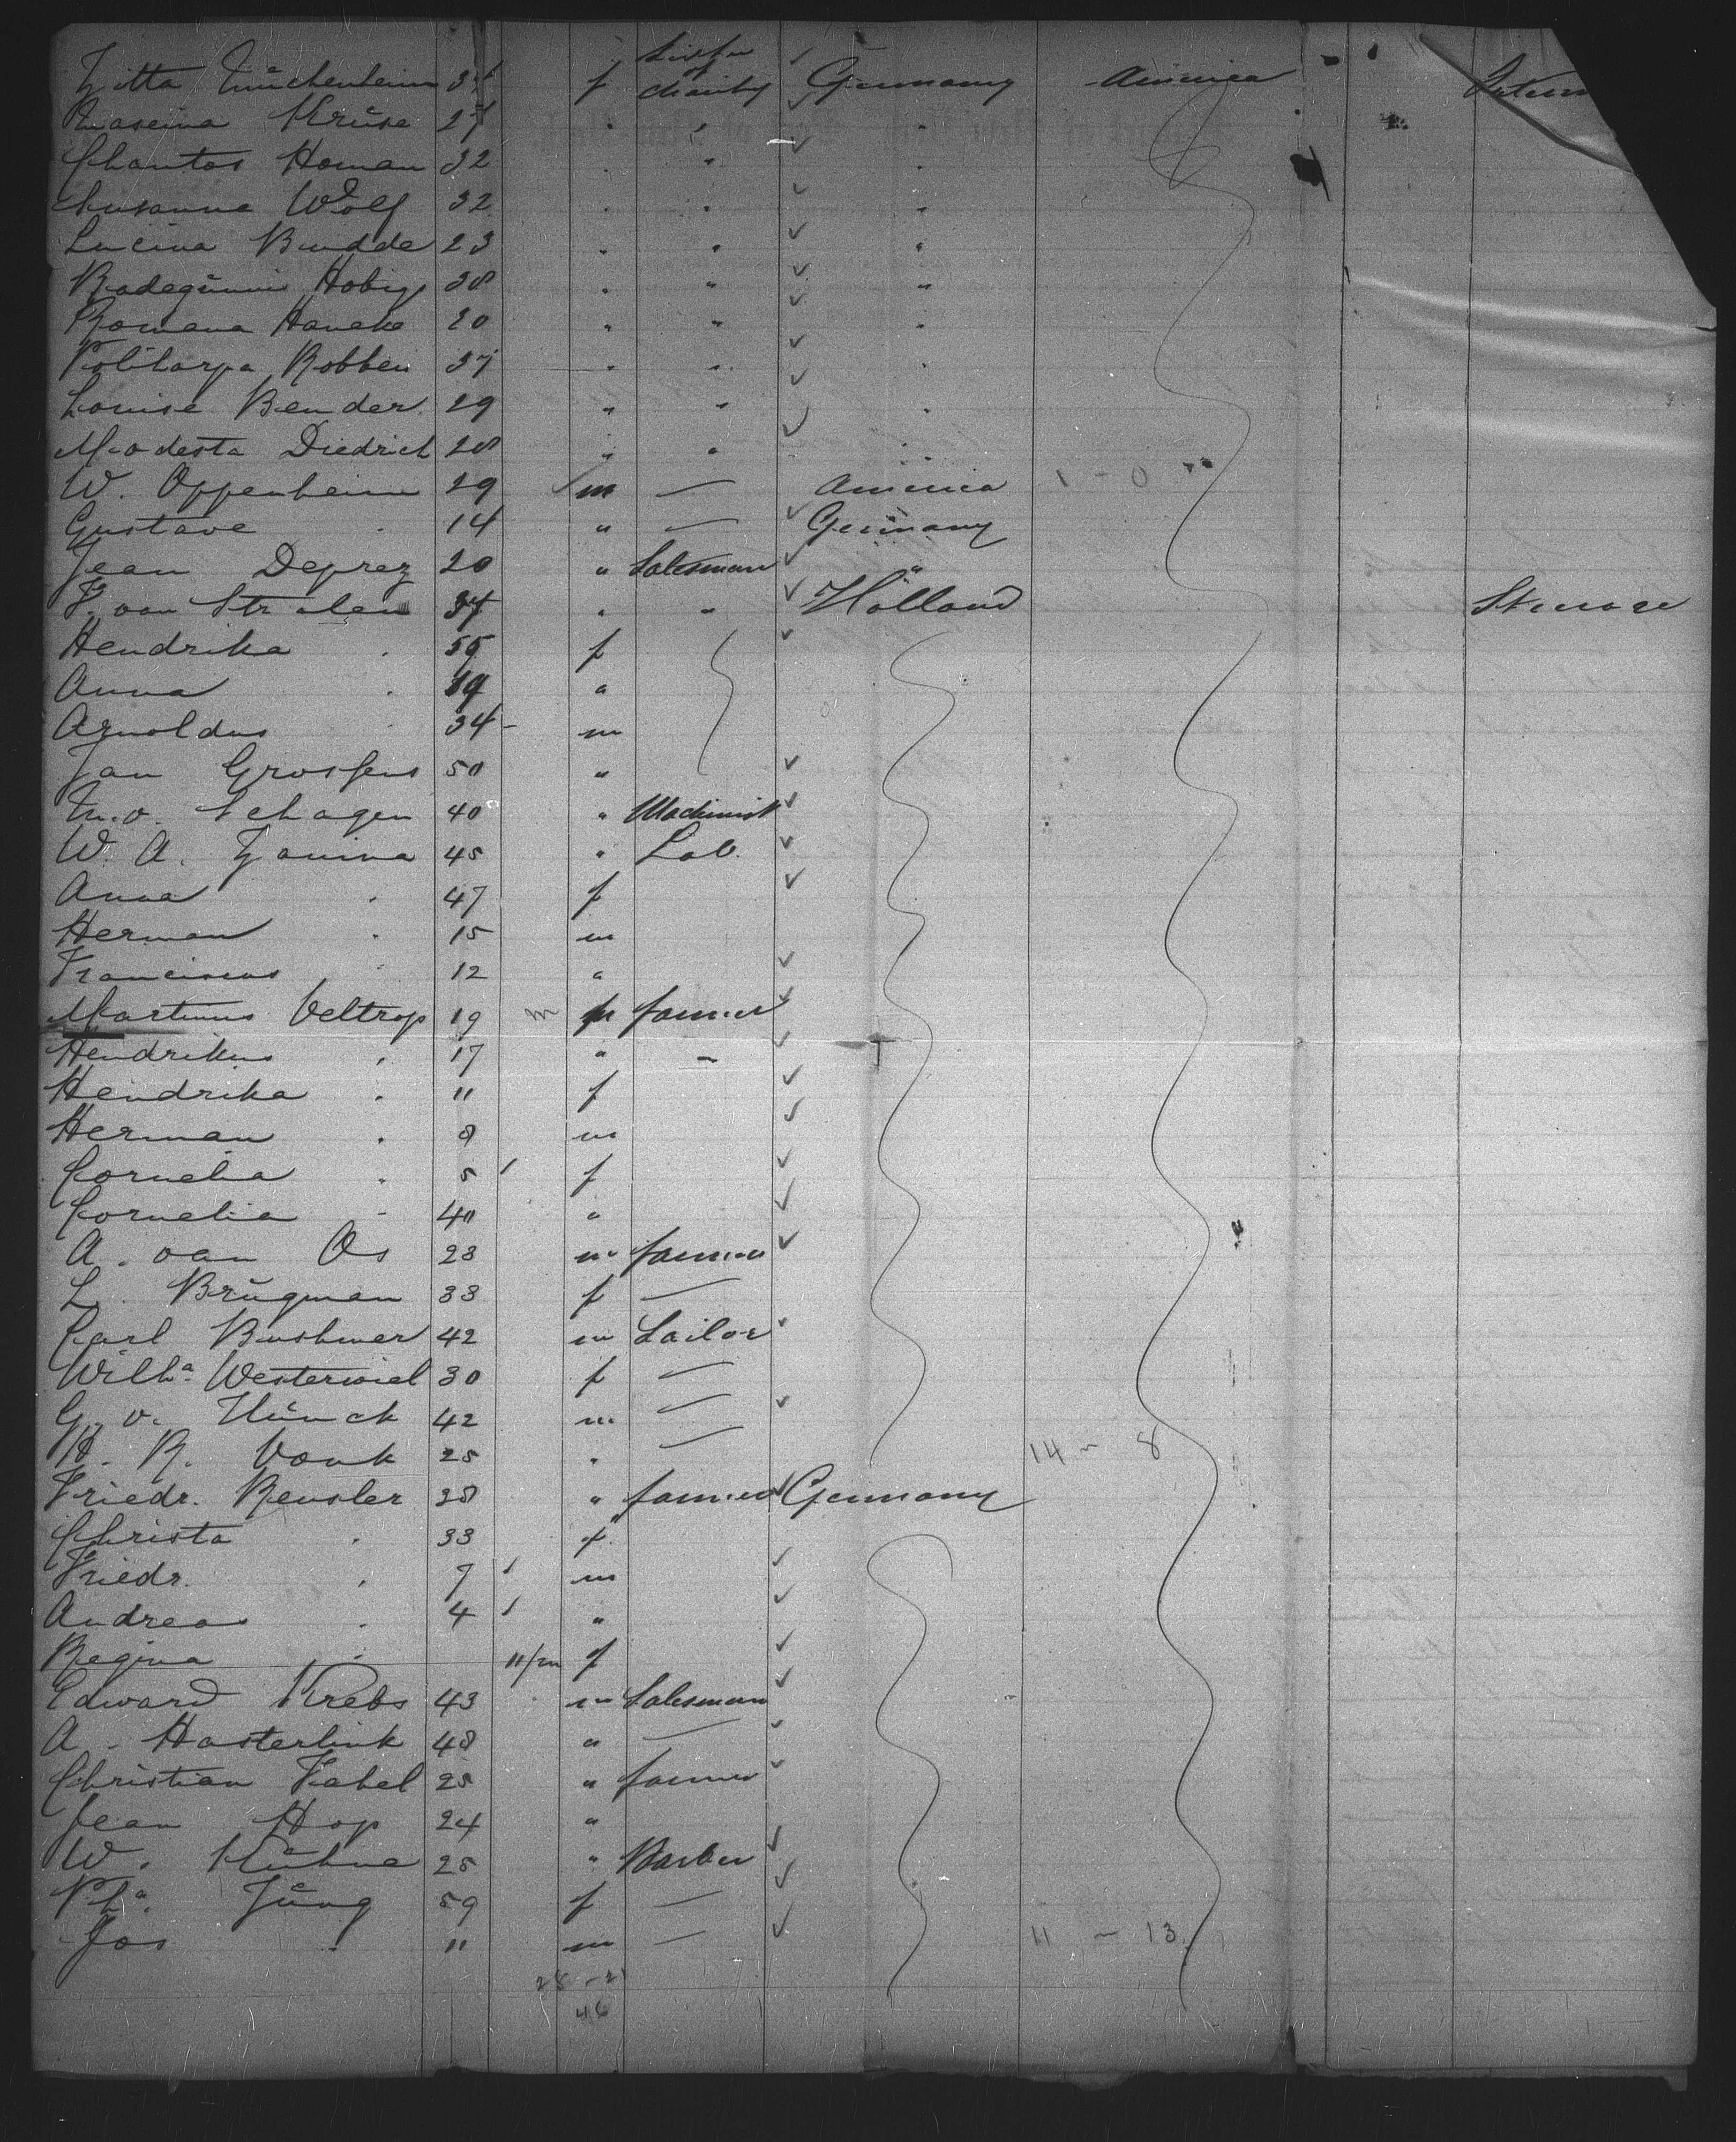 Sister of
Zitta Munchenheim 34 f charity Germany America
Kruse 27 " " "
Homan 32 " " "
Susanna Wolf 32 " " "
Lucina Budde 23 " " "
Hobig 28 " " "
Romana Haneke 20 " " "
Robben 37 " " "
Louise Bender 29 " " "
Modesta Diedrich 28 " " "
W. Oppenheim 29 m — America 1 - 0
Gustave " 14 " — Germany
Jean Deprez 20 " Salesman "
J. van Stralen 37 " " Holland
Hendrika " 55 f
Anna " 19 "
Arnoldus " 34 m
Jan 50 "
M. v. Schagen 40 " Machinist
W. A. 45 " Lab.
Anna " 47 f
Herman " 15 m
Franciscus " 12 "
Martinus Veltrop 19 m farmer
Hendrikus " 17 " "
Hendrika " 11 f
Herman " 8 m
Cornelia " 5 f
Cornelia " 40 "
A. van Os 23 m farmer
L. Brugman 33 f —
Carl Bushmer 42 m Sailor
Wilha. Westerwiel 30 f —
G. v. 42 m —
H. R. Vonk 25 " — 14 - 8
Friedr. Rensler 28 " farmer Germany
Christa " 33 f
Friedr. " 7 m
Andreas " 4 "
Regina " 11/m f
Edward Krebs 43 m Salesman
A. Hasterlink 48 " —
Christian Fabel 25 " farmer
Jean Hop 24 "
W. Kuhne 25 " Barber
Jung 59 f —
Jos " 11 m — 11 - 13
46